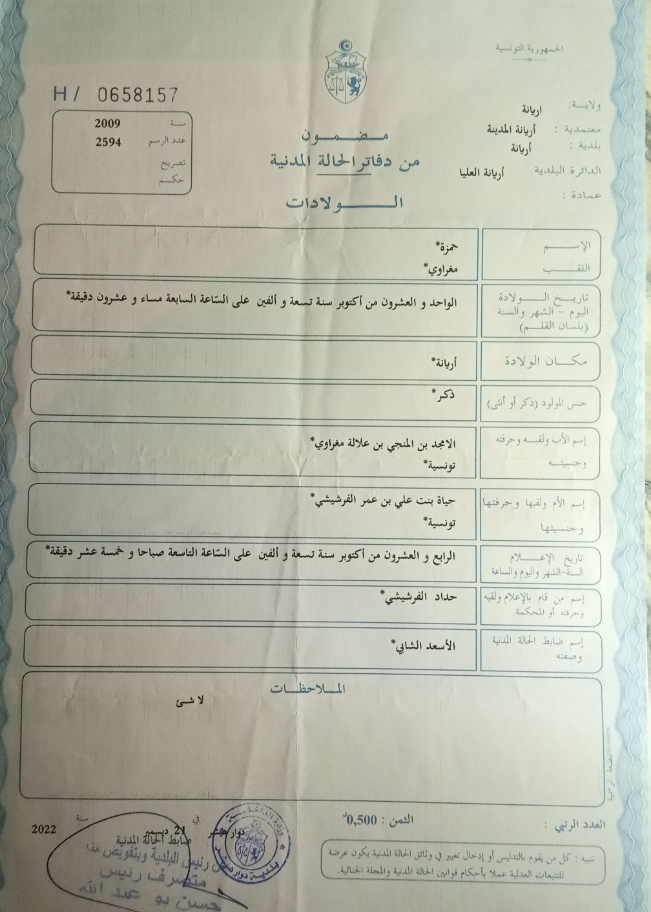 الجمهورية التونسية
H/ 0658157
ولاية: اريانة
معتمدية : أريانة المدينة
بلدية : أريانة
الدائرة البلدية أريانة العليا
عمادة :
سنة 2009
عدد الرسم 2594
تصريح
حكم
مضمون
من دفاتر الحالة المدنية
الولادات
الإسم حمزة*
اللقب مغراوي*
تاريخ الولادة
اليوم - الشهر والسنة
(بلسان القلم)
الواحد و العشرون من أكتوبر سنة تسعة و ألفين على السّاعة السابعة مساء و عشرون دقيقة*
مكان الولادة أريانة*
جنس المولود (ذكر أو أنثى) ذكر*
إسم الأب ولقبه وحرفته الامجد بن المنجي بن علالة مغراوي*
وجنسيته تونسية*
إسم الأم ولقبها وحرفتها حياة بنت علي بن عمر الفرشيشي*
وجنسيتها تونسية*
تاريخ الإعلام
السنة-الشهر واليوم والساعة
الرابع و العشرون من أكتوبر سنة تسعة و ألفين على السّاعة التاسعة صباحا و خمسة عشر دقيقة*
إسم من قام بالإعلام ولقبه
وحرفته أو المحكمة
حداد الفرشيشي*
إسم ضابط الحالة المدنية
وصفته
الأسعد الشابي*
الملاحظات
لا شئ
المطبعة الرسمية
العدد الرتبي :
الثمن : 0,500د
دوار هيشر في 21 ديسمبر سنة 2022
ضابط الحالة المدنية
عن رئيس البلدية وبتفويض منه
متصرف رئيس
حسن بو عبد الله
وزارة الداخلية
بلدية دوار هيشر
تنبيه : كل من يقوم بالتدليس أو إدخال تغيير في وثائق الحالة المدنية يكون عرضة
للتتبعات العدلية عملا بأحكام قوانين الحالة المدنية والمجلة الجنائية.